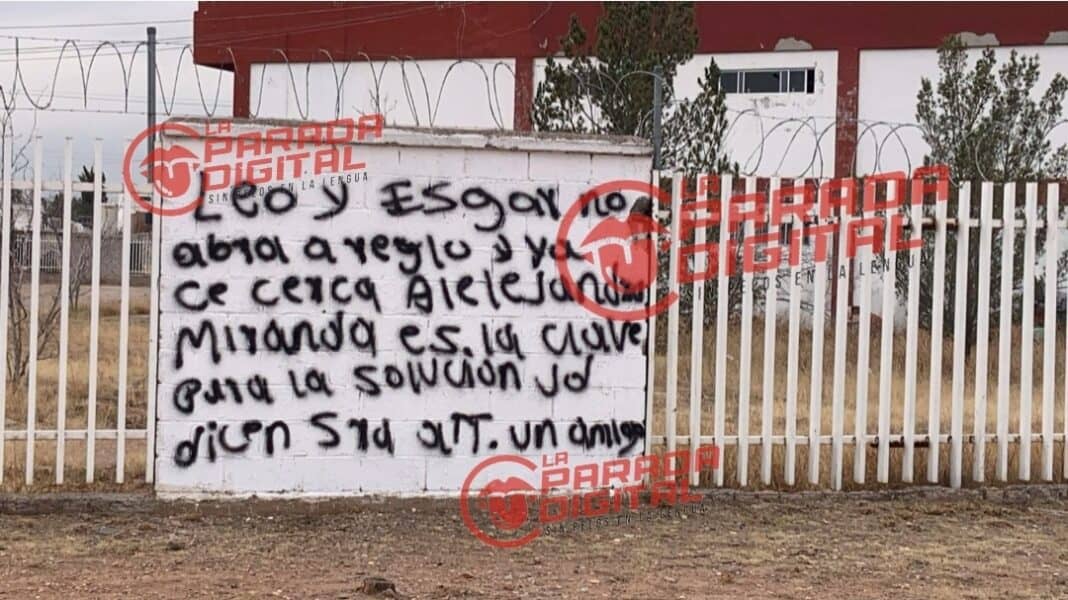 LA PARADA
DIGITAL
SIN PELOS EN LA LENGUA
Leo y Esgar no
abra a reglo y ya
ce cerca Alelejandro
Miranda es la clave
para la solución yd
dicen Sra aTT. un amigo
LA PARADA
DIGITAL
SIN PELOS EN LA LENGUA
LA
PARADA
DIGITAL
SIN PELOS EN LA LENGUA